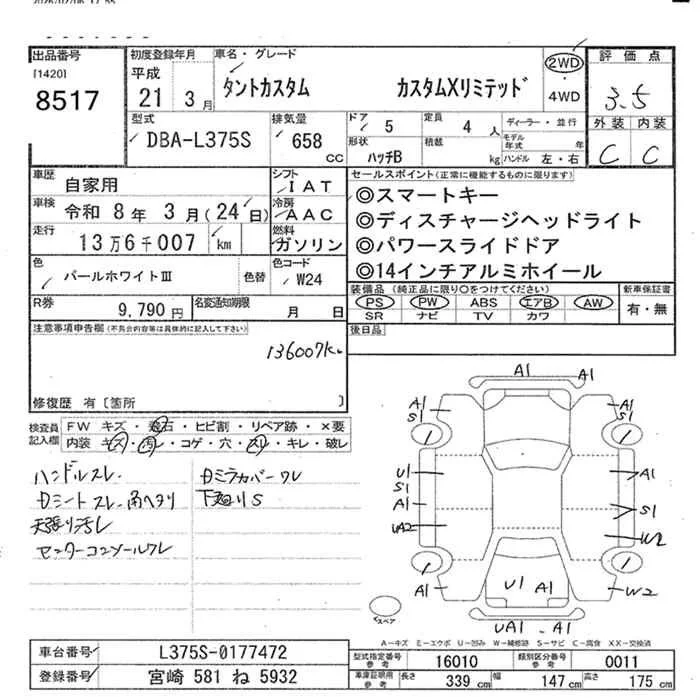 出品番号
[1420]
8517
初度登録年月
平成
21 3月
車名・グレード
タントカスタム カスタムXリミテッド
2WD
4WD
評価点
3.5
外装 内装
C C
型式
DBA-L375S
排気量
658
cc
ドア
5
定員
4 人
形状
ハッチB
積載
kg
ディーラー・並行
モデル年式 年
ハンドル 左・右
車歴
自家用
シフト
IAT
車検
令和 8年 3月(24日)
冷房
AAC
走行
13万6千007 km
燃料
ガソリン
色
パールホワイトⅢ
色替
色コード
W24
R券
9,790円
名変通知期限
月 日
セールスポイント(正常に機能するものに限ります)
◎スマートキー
◎ディスチャージヘッドライト
◎パワースライドドア
◎14インチアルミホイール
装備品(純正品に限り○をつけてください)
PS PW ABS エアB AW
SR ナビ TV カワ
新車保証書
有・無
後日品
注意事項申告欄(不具合内容等は具体的に記入して下さい)
136007km
修復歴 有〔箇所 〕
検査員記入欄
FW キズ・飛石・ヒビ割・リペア跡・×要
内装 キズ・汚レ・コゲ・穴・スレ・キレ・破レ
ハンドルスレ
天張り汚レ
センターコンソールワレ
ミラカバーワレ
下廻りS
A1
A1
A1
S1
A1
S1
U1
S1
A1
UA2
A1
A1
S1
W2
W2
U1 A1
UA1 . A1
スペア
A-キズ E-エクボ U-凹み W-補修跡 S-サビ C-腐食 XX-交換済
車台番号
L375S-0177472
登録番号
宮崎 581 ね 5932
型式指定番号
参考
16010
類別区分番号
参考
0011
車庫証明用
参考
長さ 339 cm
幅 147 cm
高さ 175 cm